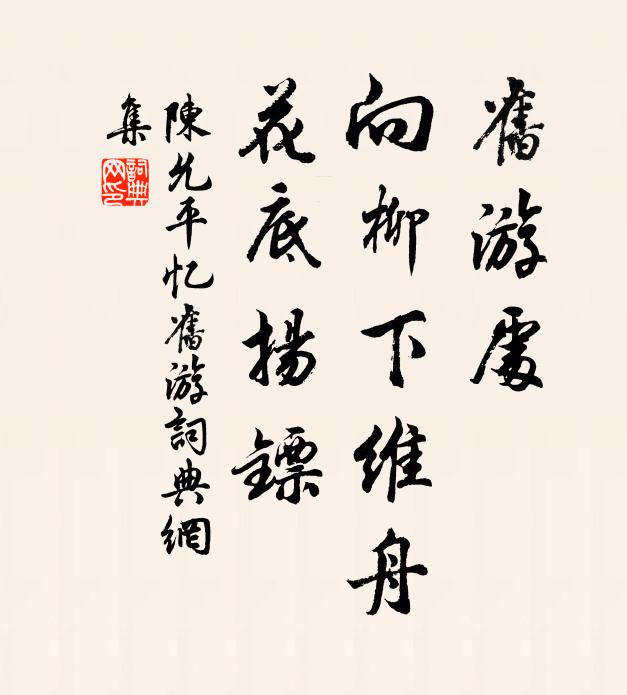 舊游處
向柳下維舟
花底揚鏢
陳允平忆舊游詞典網
集
詞典網印